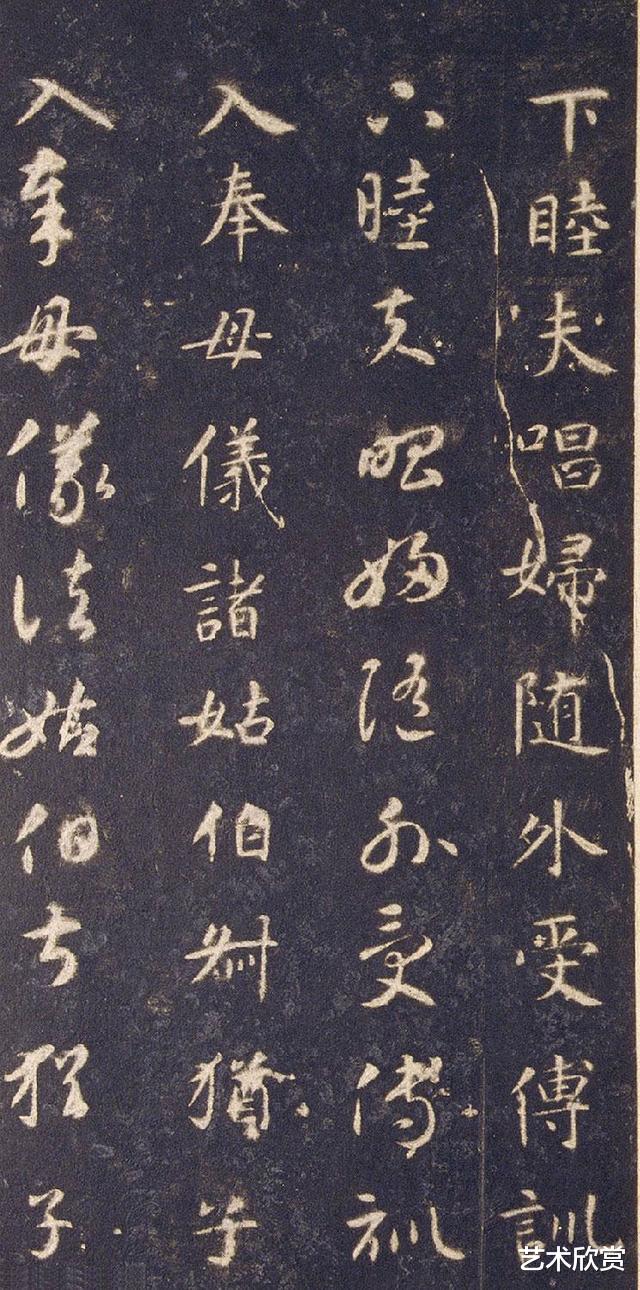 下睦夫唱婦随外受傅訓
下睦夫唱婦随外受傅訓
入奉母儀諸姑伯叔猶子
入奉母儀諸姑伯叔猶子
艺术欣赏